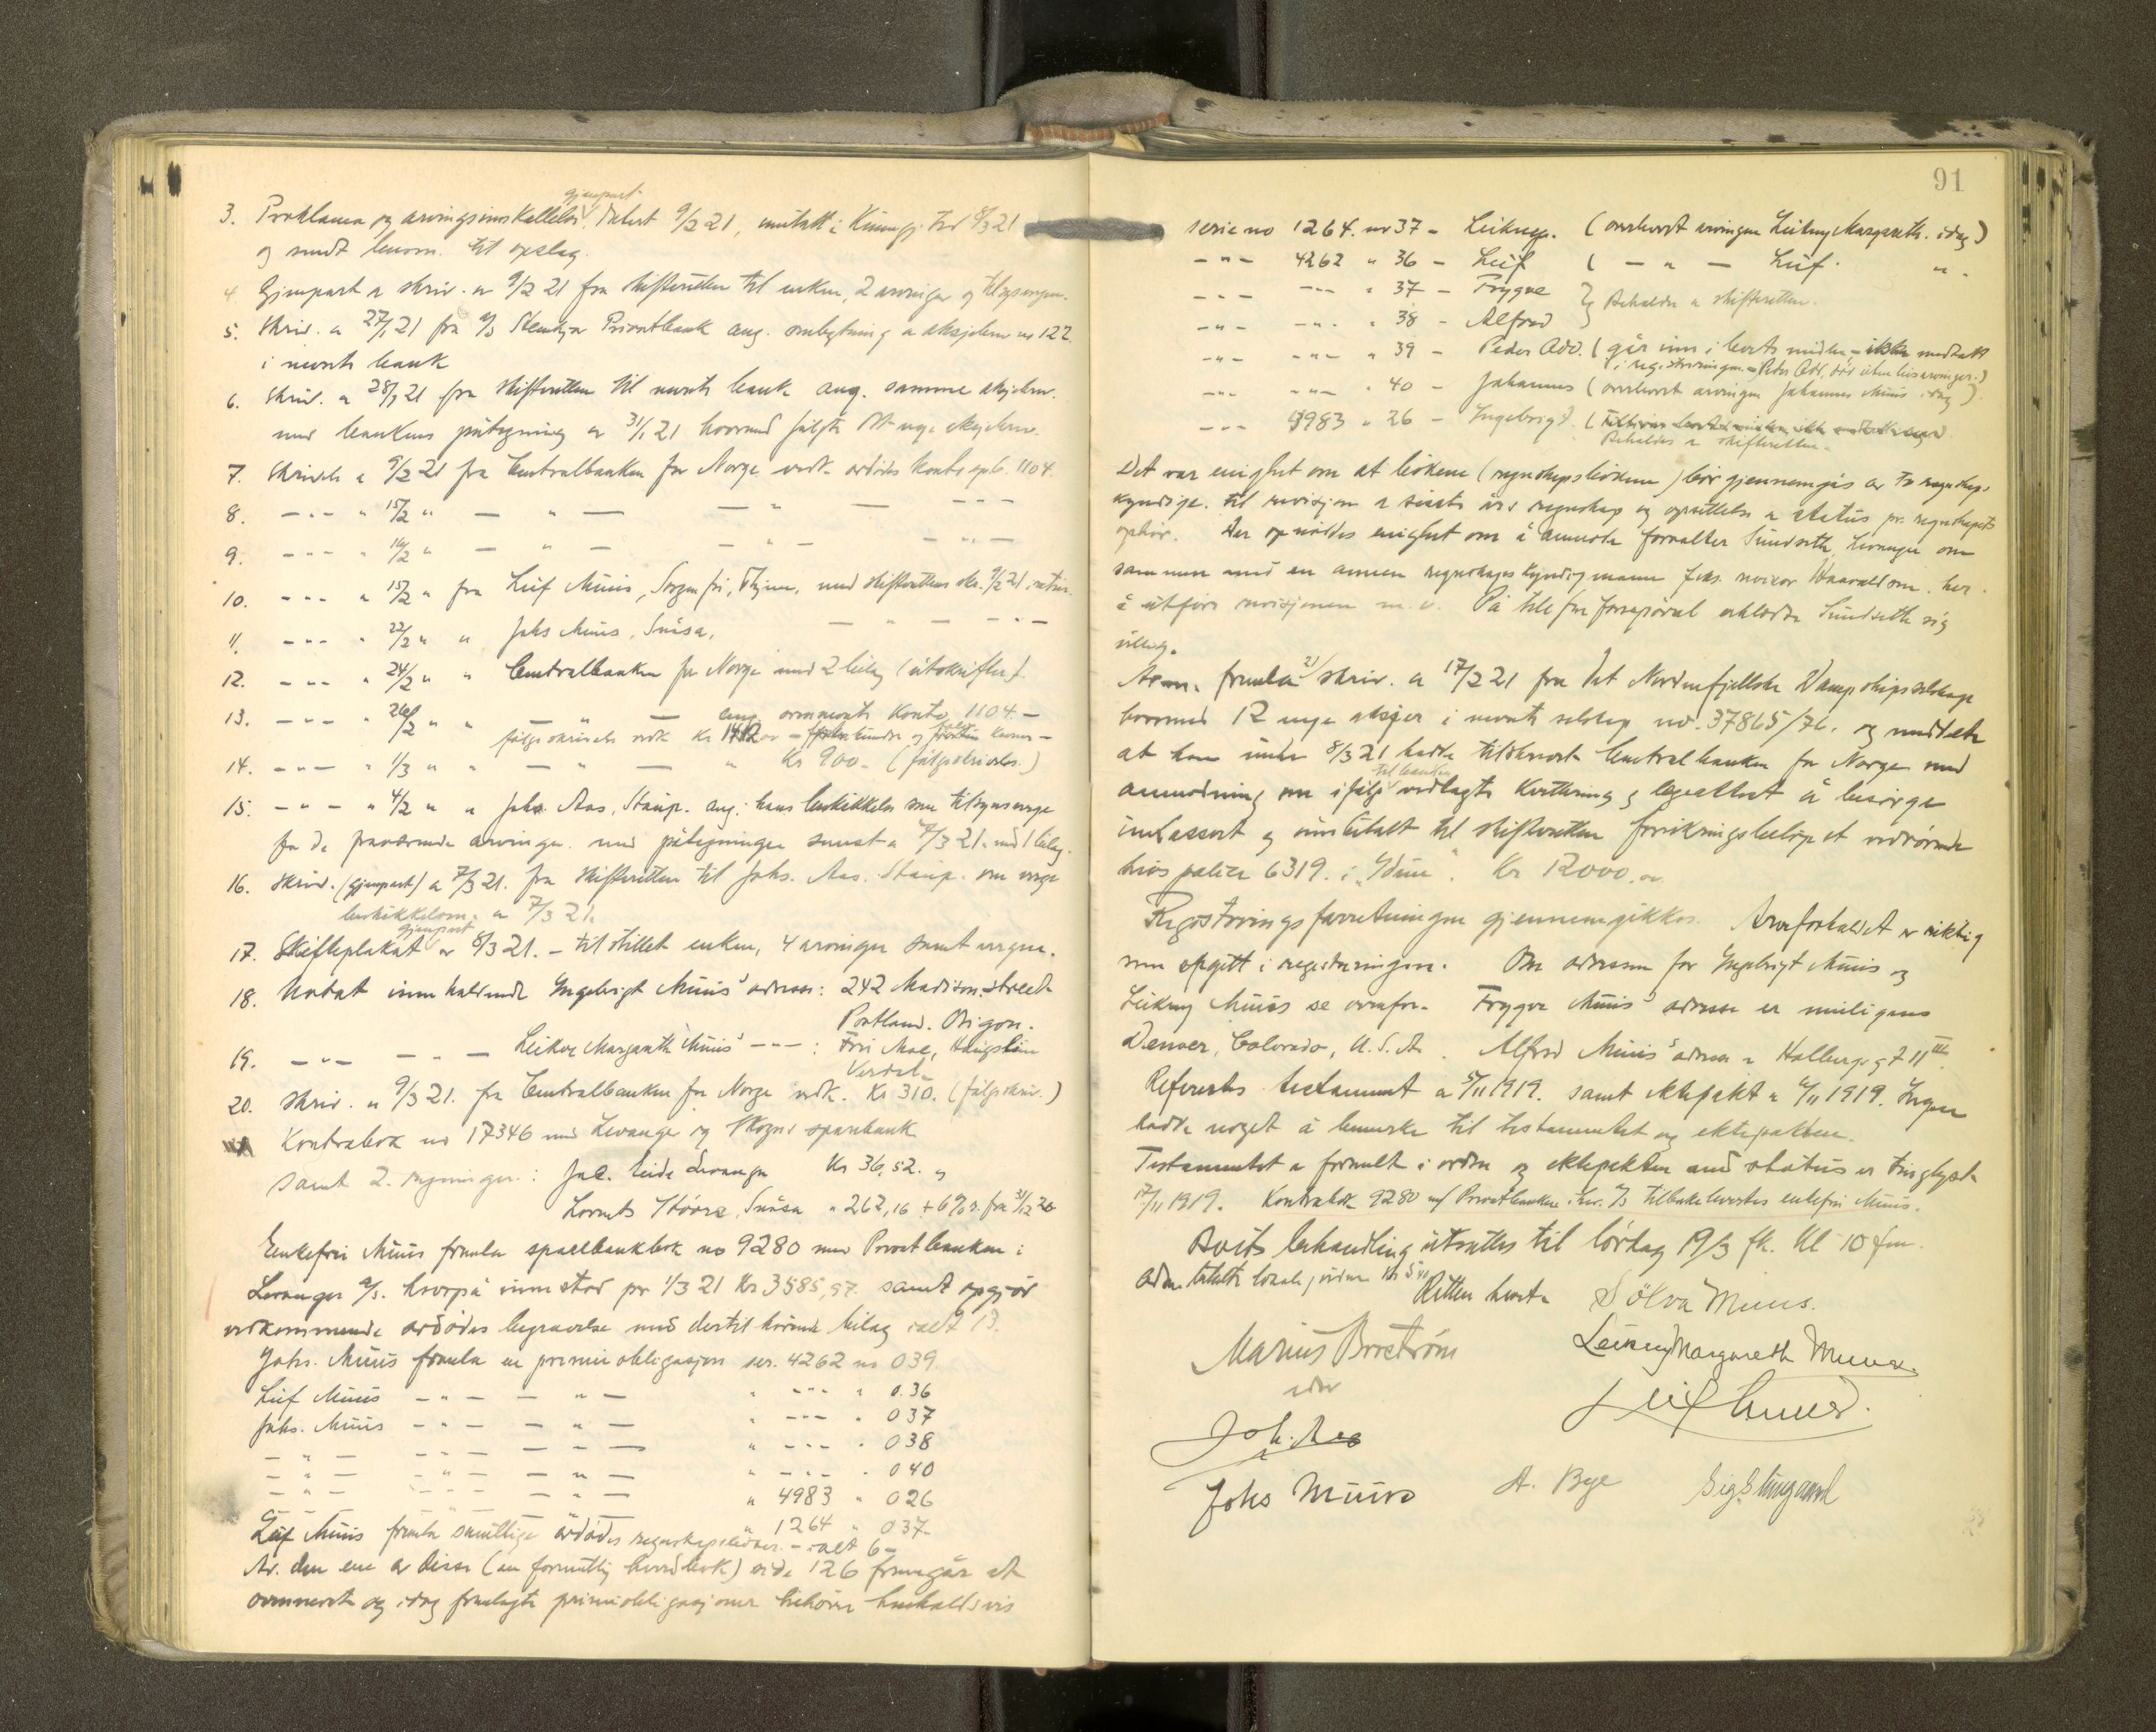 gjenpart
3. Proklama og arvingsinnkallelse datert 9/2 21, inntatt i Kunngj. tid 8/3 21
og sendt lensm. til opslag.
4. Gjenpart av skriv. av 9/2 21 fra skifteretten til enken, 2 arvinger og tilsynsvergen.
5. Skriv. av 27/1 21 fra A/S Stenkjer Privatbank ang. ombytning av aksjebrev no 122
i nevnte bank
6. Skriv. av 28/1 21 fra skifteretten til nevnte bank ang. samme aksjebrev.
med bankens påtegning av 31/1 21 hvorved fulgte nye aksjebrev.
7. Skrivelse av 9/2 21 fra Centralbanken for Norge vedk. avdødes konto 1104.
8. - " - " 15/2 " — " — — " — - - -
9. - - - " 16/2 " — " — — " — - " -
10. - - - " 15/2 " fra Leif Müüs, Sorgenfri, med skifterettens skr. 9/2 21 i retur.
11. - - - " 22/2 " " Johs Müüs, Snåsa, — " — - - -
12. - - - " 24/2 " " Centralbanken for Norge med 2 bilag (utskrifter).
13. - - - " 26/2 " " — " — ang. ovennevnte Konto 1104.-
følgeskrivelse vedk Kr 1412 00 - hundre og kroner -
14. - - - " 1/3 " " — " — " Kr 900.- (følgeskrivelse.)
15. - " - " 4/2 " " Johs. Aas, Stäup. ang: hans beskikkelse som tilsynsverge
for de fraværende arvinger. med påtegninger senest av 7/3 21. med 1 bilag.
16. Skriv. (gjenpart) av 7/3 21. fra skifteretten til Johs. Aas. Stäup. om verge
beskikkelsen. av 7/3 21.
gjenpart
17. Skifteplakat av 8/3 21. - tilstillet enken, 4 arvinger samt vergen.
18. Notat inneholdende Ingebrigt Müüs' adresse: 242 Madison-street
Portland. Origon.
19. - " - — " — Leikny Margareth Müüs' - - - : Fru Moe, Haugslien
Verdal.
20. Skriv. av 9/3 21. fra Centralbanken for Norge vedk. Kr 310. (følgeskriv.)
Kontrabok no 17346 med Levanger og Skogns sparebank
samt 2. regninger: Jac. Eide Levanger Kr 36,52. og
Lorents Støvre, Snåsa " 262,16 + 6% r. fra 31/12 20
Enkefru Müüs fremla sparebankbok no 9280 med Privatbanken i
Levanger A/S. hvorpå innestod pr 1/3 21 Kr 3585,97. samt opgjør
vedkommende avdødes begravelse med dertil hørende bilag ialt 13.
Johs. Müüs fremla en premieobligasjon ser. 4262 no 039.
Leif Müüs - " - — " — " - - - " 0.36
Johs. Müüs - " - — " — " - - - " 037
— " — - " - — " — " - - - " 038
— " — - " - — " — " - - - " 040
- " - - " - — " — " 4983 " 026
" 1264 " 037-
Leif Müüs fremla samtlige avdødes regnskapsbøker. - ialt 6-
Av den ene av disse (en formentlig hovedbok) side 126 fremgår at
ovennevnte og idag fremlagte premieobligasjoner tilhører henholdsvis
91
serie no 1264. nr 37 - Leikny. (overlevert arvingen Leikny Margareth. idag)
- " - 4262 " 36 - Leif ( — " — Leif. " -
- - - - - - " 37 - Trygve } Beholdes av skifteretten.
- " - - " - " 38 - Alfred
- " - - " - " 39 - Peder Adv. ( går inn i boets midler - ikke medtatt
i registreringen - Peder Adv. død uten livsarvinger.)
- - - - " - " 40 - Johannes (overlevert arvingen Johannes Müüs idag)
- - - 4983 " 26 - Ingebrigt. (
Beholdes av skifteretten.
Det var enighet om at bökene (regnskapsbökene) bör gjennemgås av to regnskaps
kyndige. til revisjon av siste års regnskap og opsettelse av status pr. regnskapets
ophör. Der opnåddes enighet om å anmode forvalter Sundseth, Levanger om
sammen med en annen regnskapskyndig mann f.eks. revisor Haavaldsen. her.
å utföre revisjonen m. v. På telefonforespörsel erklærte Sundseth sig
villig.
Adm. fremla 21/ skriv. av 17/2 21 fra Det Nordenfjellske Dampskipsselskap
hvorved 12 nye aksjer i nevnte selskap no. 37865/76. og meddelte
at han under 8/3 21 hadde tilskrevet Centralbanken for Norge med
anmodning om ifølge til banken vedlagte kvittering og legalattest å besörge
innkassert og innbetalt til skifteretten forsikringsbelöpet vedrörende
livspolice 6319. i "Idun". Kr 12000.00
Registreringsforretningen gjennemgikkes. Arveforholdet er riktig
som opgitt i registreringen. Om adressen for Ingebrigt Müüs og
Leikny Müüs se ovenfor. Trygve Müüs' adresse er muligens
Denver, Colorado, U.S.A. Alfred Müüs' adresse er Hallingsgt 11 III.
Refererte testament av 5/11 1919. samt ektepakt av 6/11 1919. Ingen
hadde noget å bemerke til testamentet og ektepakten.
Testamentet er formelt i orden og ektepakten med status er tinglyst
17/11 1919. Kontrabok 9280 m/ Privatbanken i Lev. A/S tilbakelevertes enkefru Müüs.
Boets behandling utsattes til lördag 19/3 fk. kl 10 fm.
Retten hevet
Sölva Muus.
Marius Broström
Leikny Margareth Muus.
Leif Muus.
Joh. Aas
Johs Müüs
A. Bye